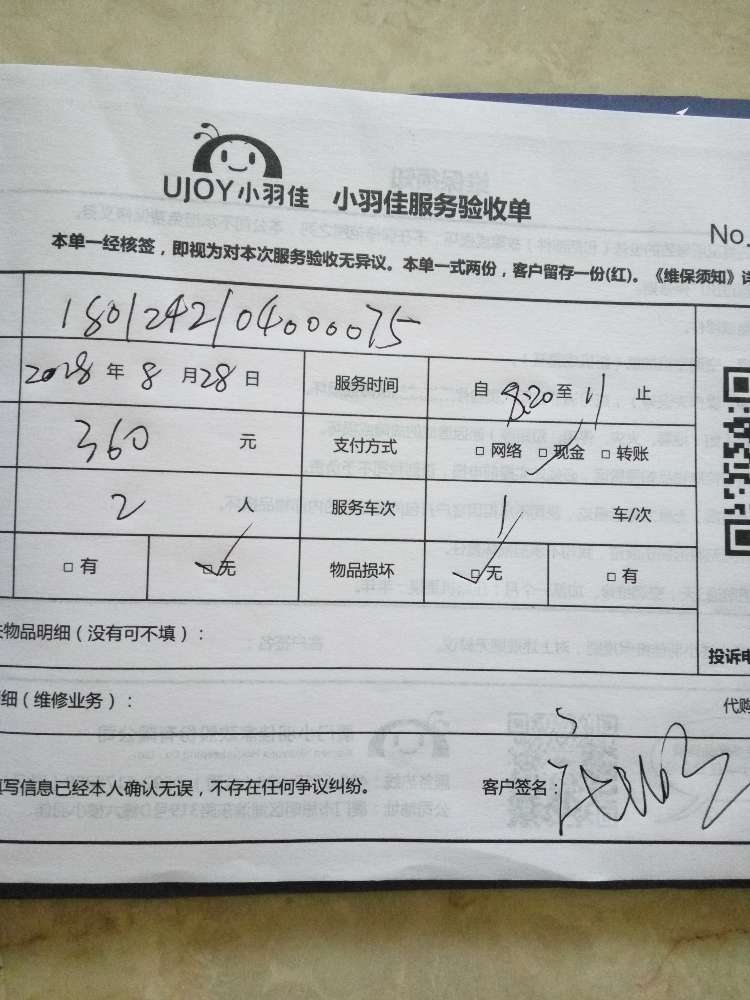 UJOY小羽佳 小羽佳服务验收单
No.
本单一经核签，即视为对本次服务验收无异议。本单一式两份，客户留存一份(红)。《维保须知》详
180124210400075
2018年8月28日 服务时间 自 8:20 至 11 止
360 元 支付方式 □网络 □现金 □转账
2 人 服务车次 1 车/次
□有 □无 物品损坏 □无 □有
物品明细（没有可不填）：
投诉电
细（维修业务）：
代购
填写信息已经本人确认无误，不存在任何争议纠纷。 客户签名：